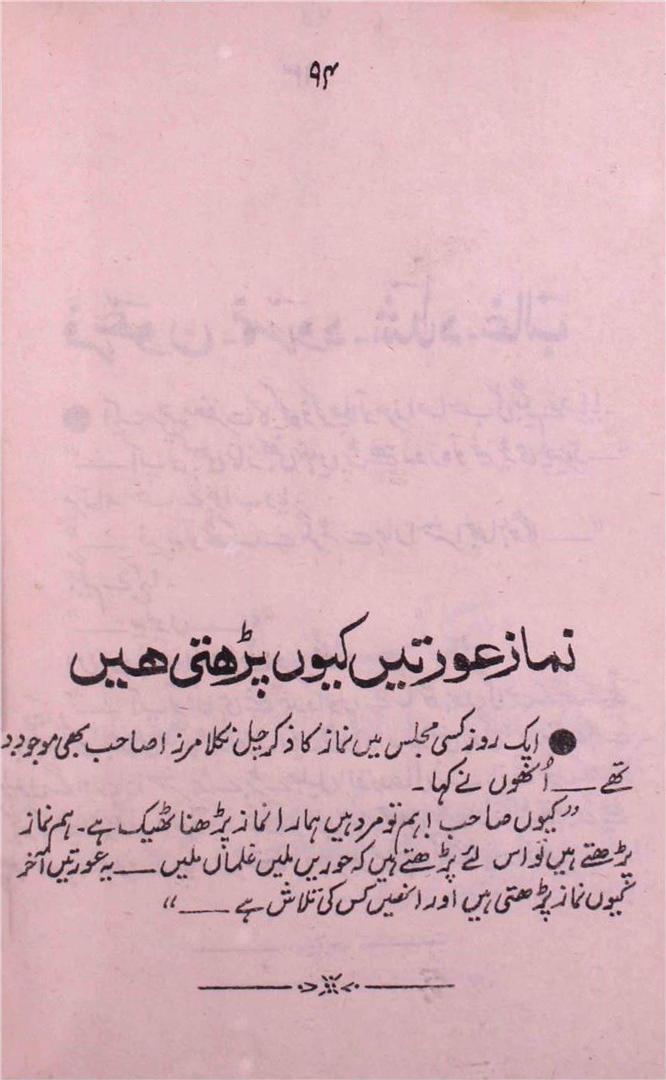 ۹۴
نماز عورتیں کیوں پڑھتی ھیں
● ایک روز کسی مجلس میں نماز کا ذکر چل نکلا مرزا صاحب بھی موجود
تھے ــــ اُنھوں نے کہا۔
”کیوں صاحب! ہم تو مرد ہیں ہمارا نماز پڑھنا ٹھیک ہے۔ ہم نماز
پڑھتے ہیں تو اس لئے پڑھتے ہیں کہ حوریں ملیں غلماں ملیں ــــ یہ عورتیں آخر
کیوں نماز پڑھتی ہیں اور انھیں کس کی تلاش ہے ــــ“